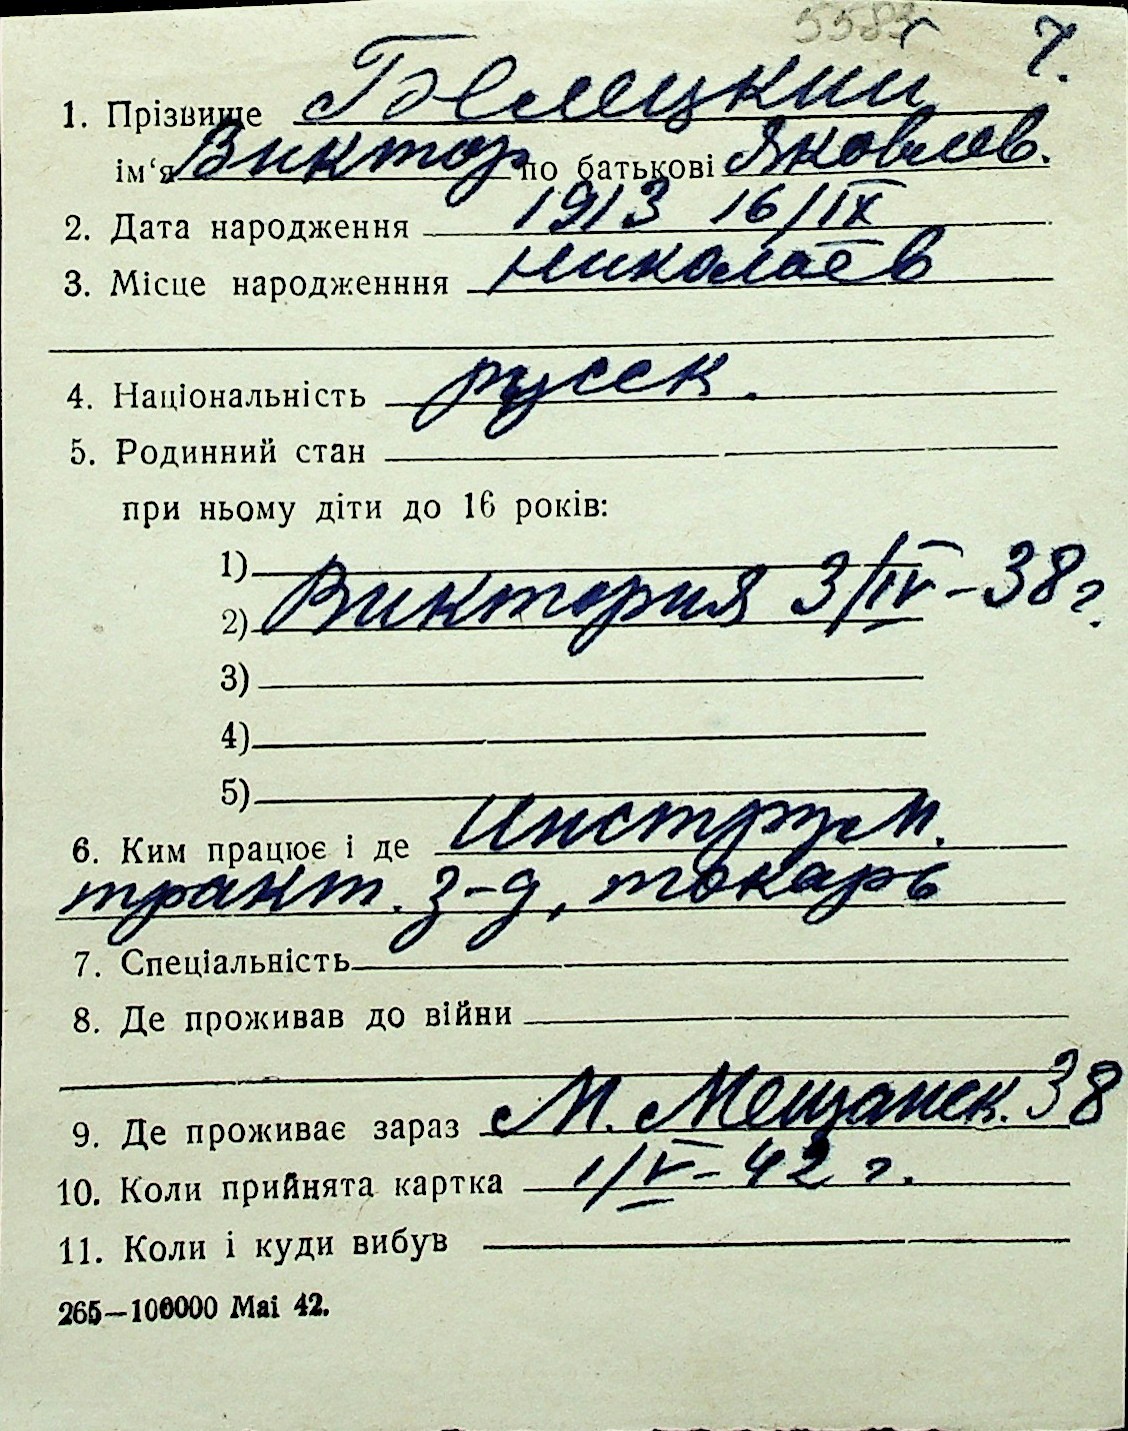 5583 7.
1. Прізвище Белецкий
ім‘я Виктор по батькові Яковлев.
2. Дата народження 1913 16/IX
3. Місце народженння Николаев
4. Національність русск.
5. Родинний стан
при ньому діти до 16 років:
1)
2) Виктория 3/IV–38г.
3)
4)
5)
6. Ким працює і де Инструм.
тракт. з-д, токарь
7. Спеціальність
8. Де проживав до війни
9. Де проживає зараз М. Мещанск. 38
10. Коли прийнята картка 1/V–42 г.
11. Коли і куди вибув
265—100000 Mai 42.